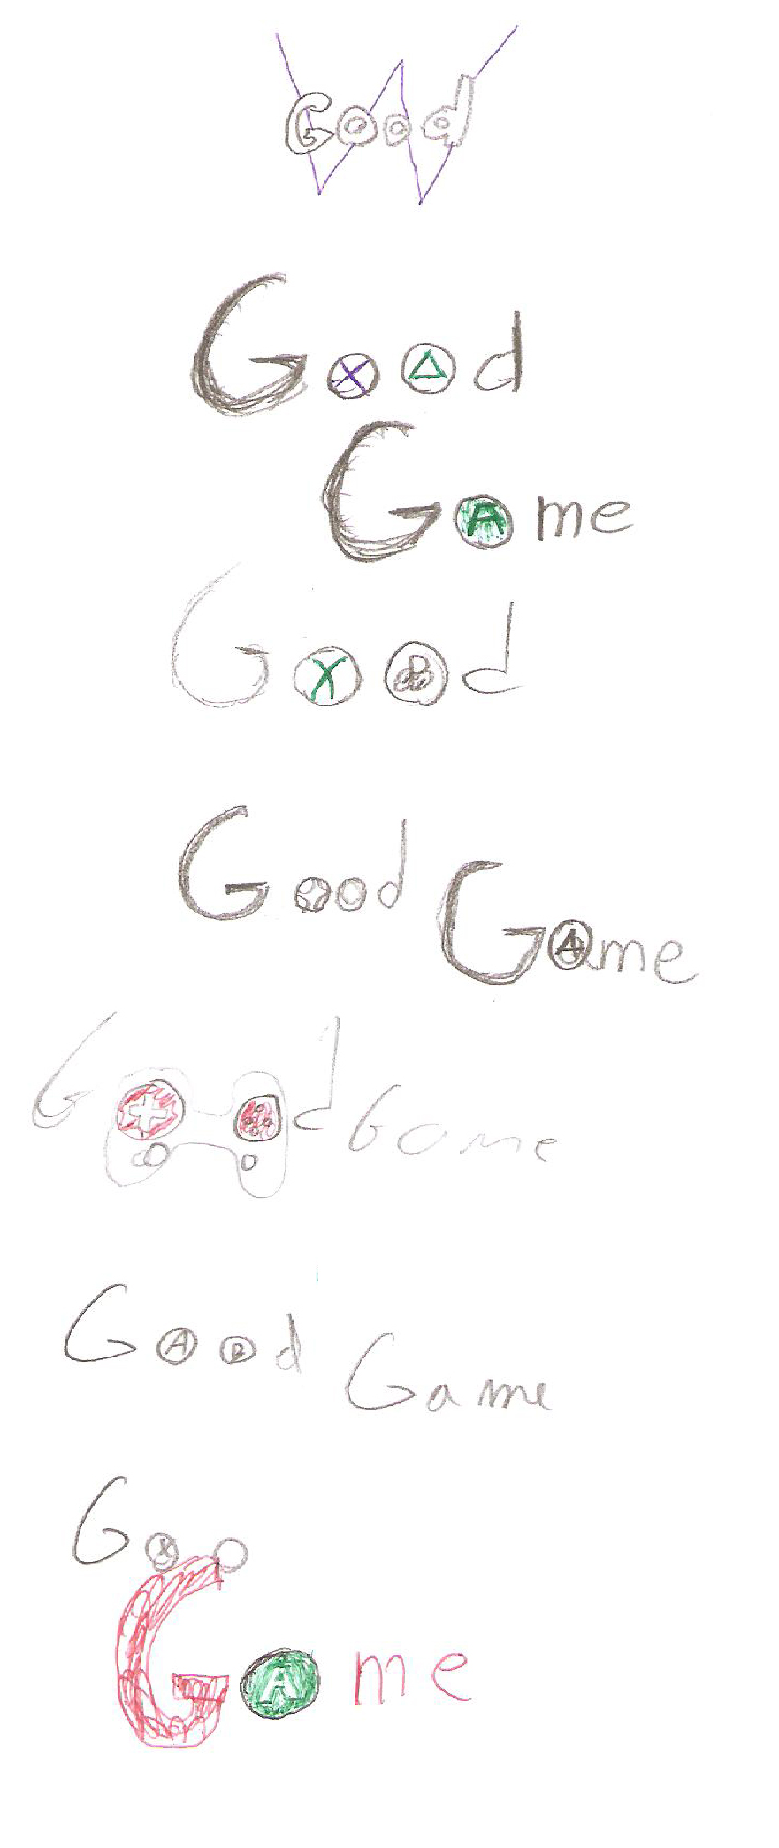 Good
Good
Game
GXBd
Good
Game
Good
Game
GABd
Game
GX
Game